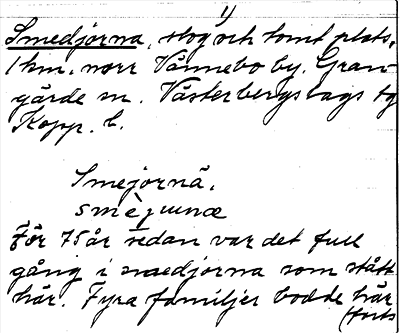 1)
Smedjorna, skog och tomt plats,
1 km. norr Vännebo by. Gran-
gärde sn. Västerbergslags tg
Kopp. l.
Smejornä,
För 75 år sedan var det full
gång i smedjorna som stått
här. Fyra familjer bodde här
(forts